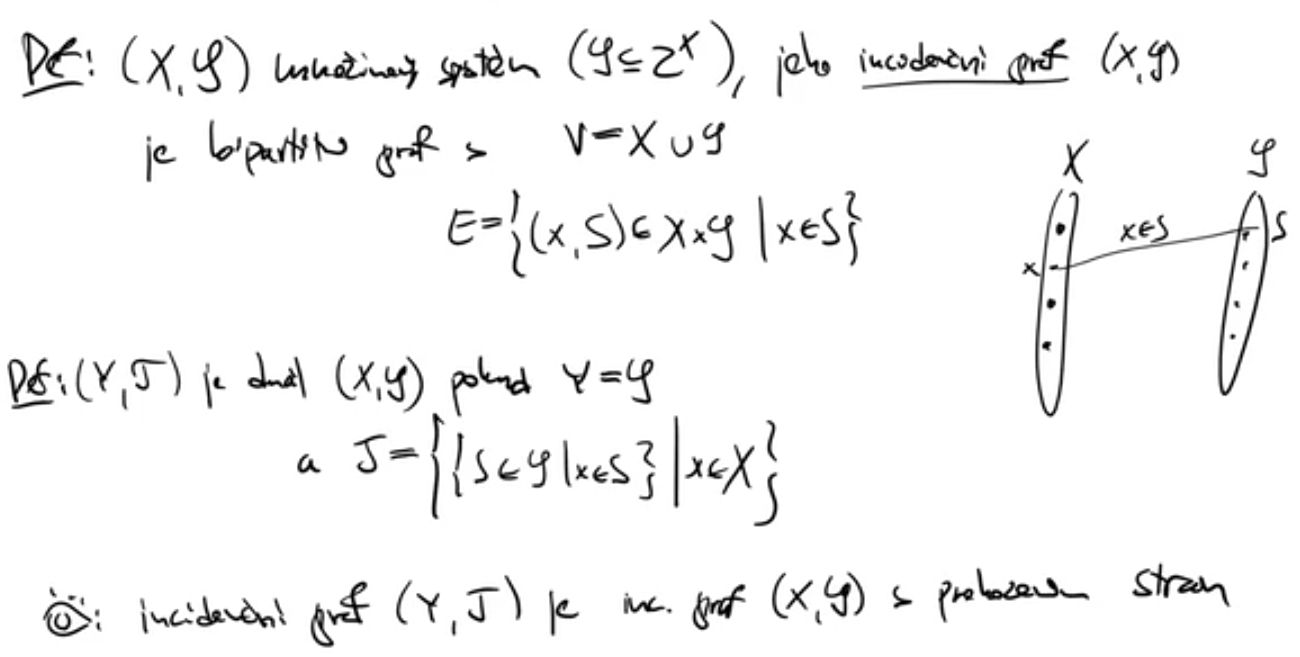 Df: (X,𝒮) množinový systém (𝒮⊆2^X), jeho incidenční graf (X,𝒮)
je bipartitní graf s V=X∪𝒮
X 𝒮
E={(x,S)∈X×𝒮 | x∈S}
x∈S S
x
Df: (Y,𝒯) je duál (X,𝒮) pokud Y=𝒮
a 𝒯={{S∈𝒮|x∈S} | x∈X}
: incidenční graf (Y,𝒯) je inc. graf (X,𝒮) s prohozením stran